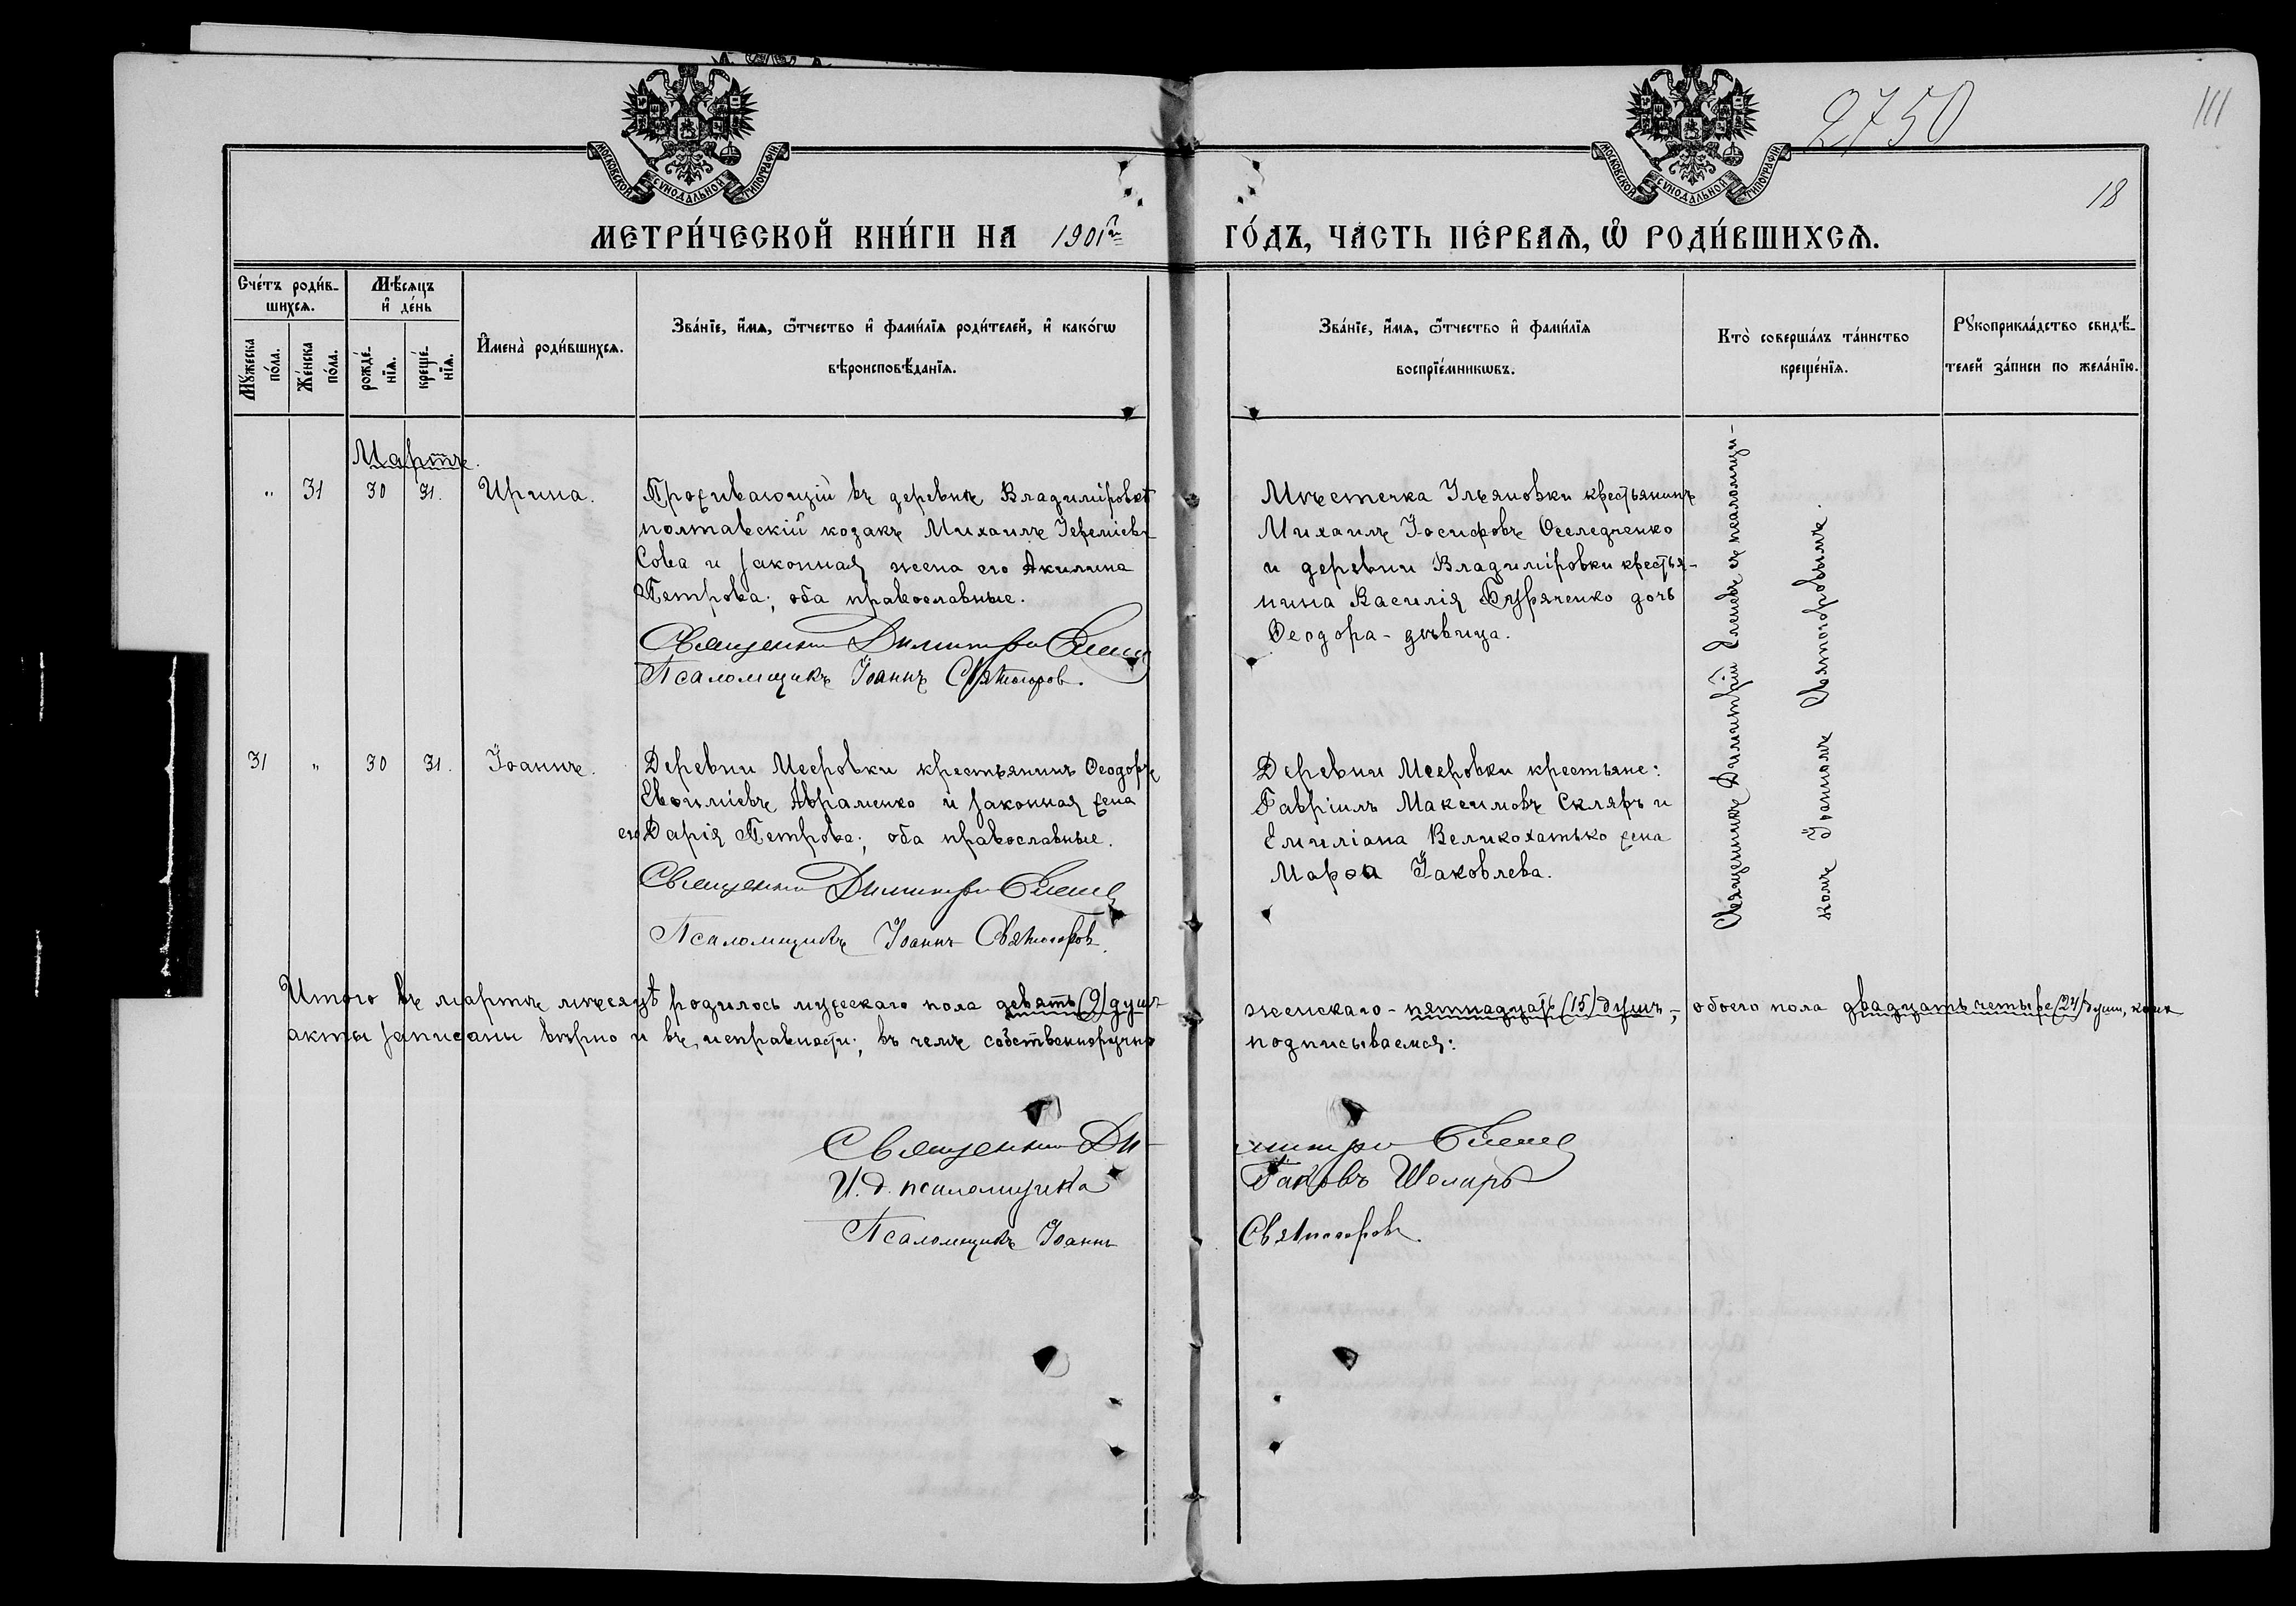 2750
111
18
МОСКОВСКОЙ СѴНОДАЛЬНОЙ ТИПОГРАФІИ
МОСКОВСКОЙ СѴНОДАЛЬНОЙ ТИПОГРАФІИ
МЕТРИ́ЧЕСКОЙ КНИ́ГИ НА 1901й ГО́ДЪ, ЧА́СТЬ ПЕ́РВАѦ, Ѡ҆ РОДИ́ВШИХСѦ.
Сче́тъ роди́вшихсѧ.
Мꙋ́жеска по́ла.
Же́нска по́ла.
Мѣ́сяцъ и҆ де́нь
рожде́нїѧ.
креще́нїѧ.
И҆мена̀ роди́вшихсѧ.
Зва́нїе, и҆́мѧ, ѿ́тчество и҆ фами́лїѧ роди́телей, и҆ како́гѡ
вѣроисповѣ́данїѧ.
Зва́нїе, и҆́мѧ, ѿ́тчество и҆ фами́лїѧ
воспрїе́мникѡвъ.
Кто̀ соверша́лъ та́инство
креще́нїѧ.
Рꙋкоприкла́дство свидѣ́-
телей за́писи по жела́нїю.
Мартъ.
" 31 30 31. Ирина.
Проживающій въ деревнѣ Владиміровкѣ
полтавскій козакъ Михаилъ Іереміевъ
Сова и законная жена его Акилина
Петрова; оба православные.
Священникъ Димитрій
Псаломщикъ Іоаннъ Святогоровъ.
Мѣстечка Ульяновки крестьянинъ
Михаилъ Іосифовъ Оселедченко
и деревни Владиміровки крестья-
нина Василія Буряченко дочь
Ѳеодора - дѣвица.
Священникъ Димитрій съ псаломщи-
комъ Іоанномъ Святогоровымъ.
31 " 30 31. Іоаннъ.
Деревни Мееровки крестьянинъ Ѳеодоръ
Евѳиміевъ Авраменко и законная жена
его Дарія Петрова; оба православные.
Священникъ Димитрій
Псаломщикъ Іоаннъ Святогоровъ.
Деревни Мееровки крестьяне:
Гавріилъ Максимовъ Скляръ и
Емиліана Великохатько жена
Марѳа Іаковлева.
Итого въ мартѣ мѣсяцѣ родилось мужескаго пола девять (9) душъ женскаго - пятнадцать (15) душъ, - обоего пола двадцать четыре (24) души, коихъ
акты записаны вѣрно и въ исправности; въ чемъ собственноручно подписываемся:
Священникъ Димитрій
И. д. псаломщика Іаковъ
Псаломщикъ Іоаннъ Святогоровъ.